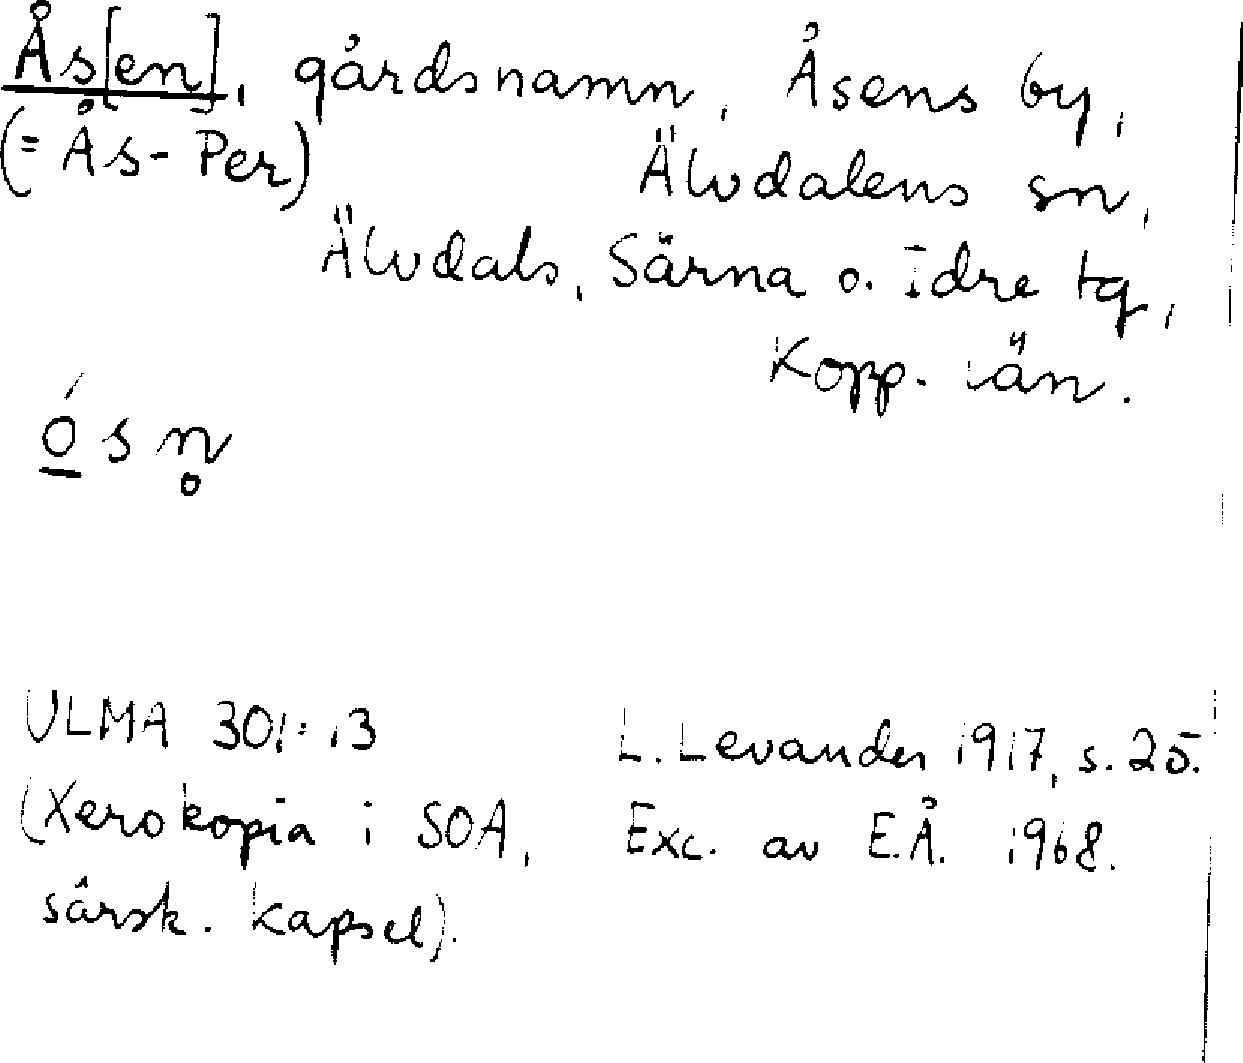 Ås[en], gårdsnamn, Åsens by,
(= Ås-Per) Älvdalens sn,
Älvdals, Särna o. Idre tg,
Kopp. län.
ó̲ s n̥
ULMA 301:13 L. Levander 1917, s. 25.
(Xerokopia i SOA, Exc. av E.Å. 1968.
särsk. kapsel).